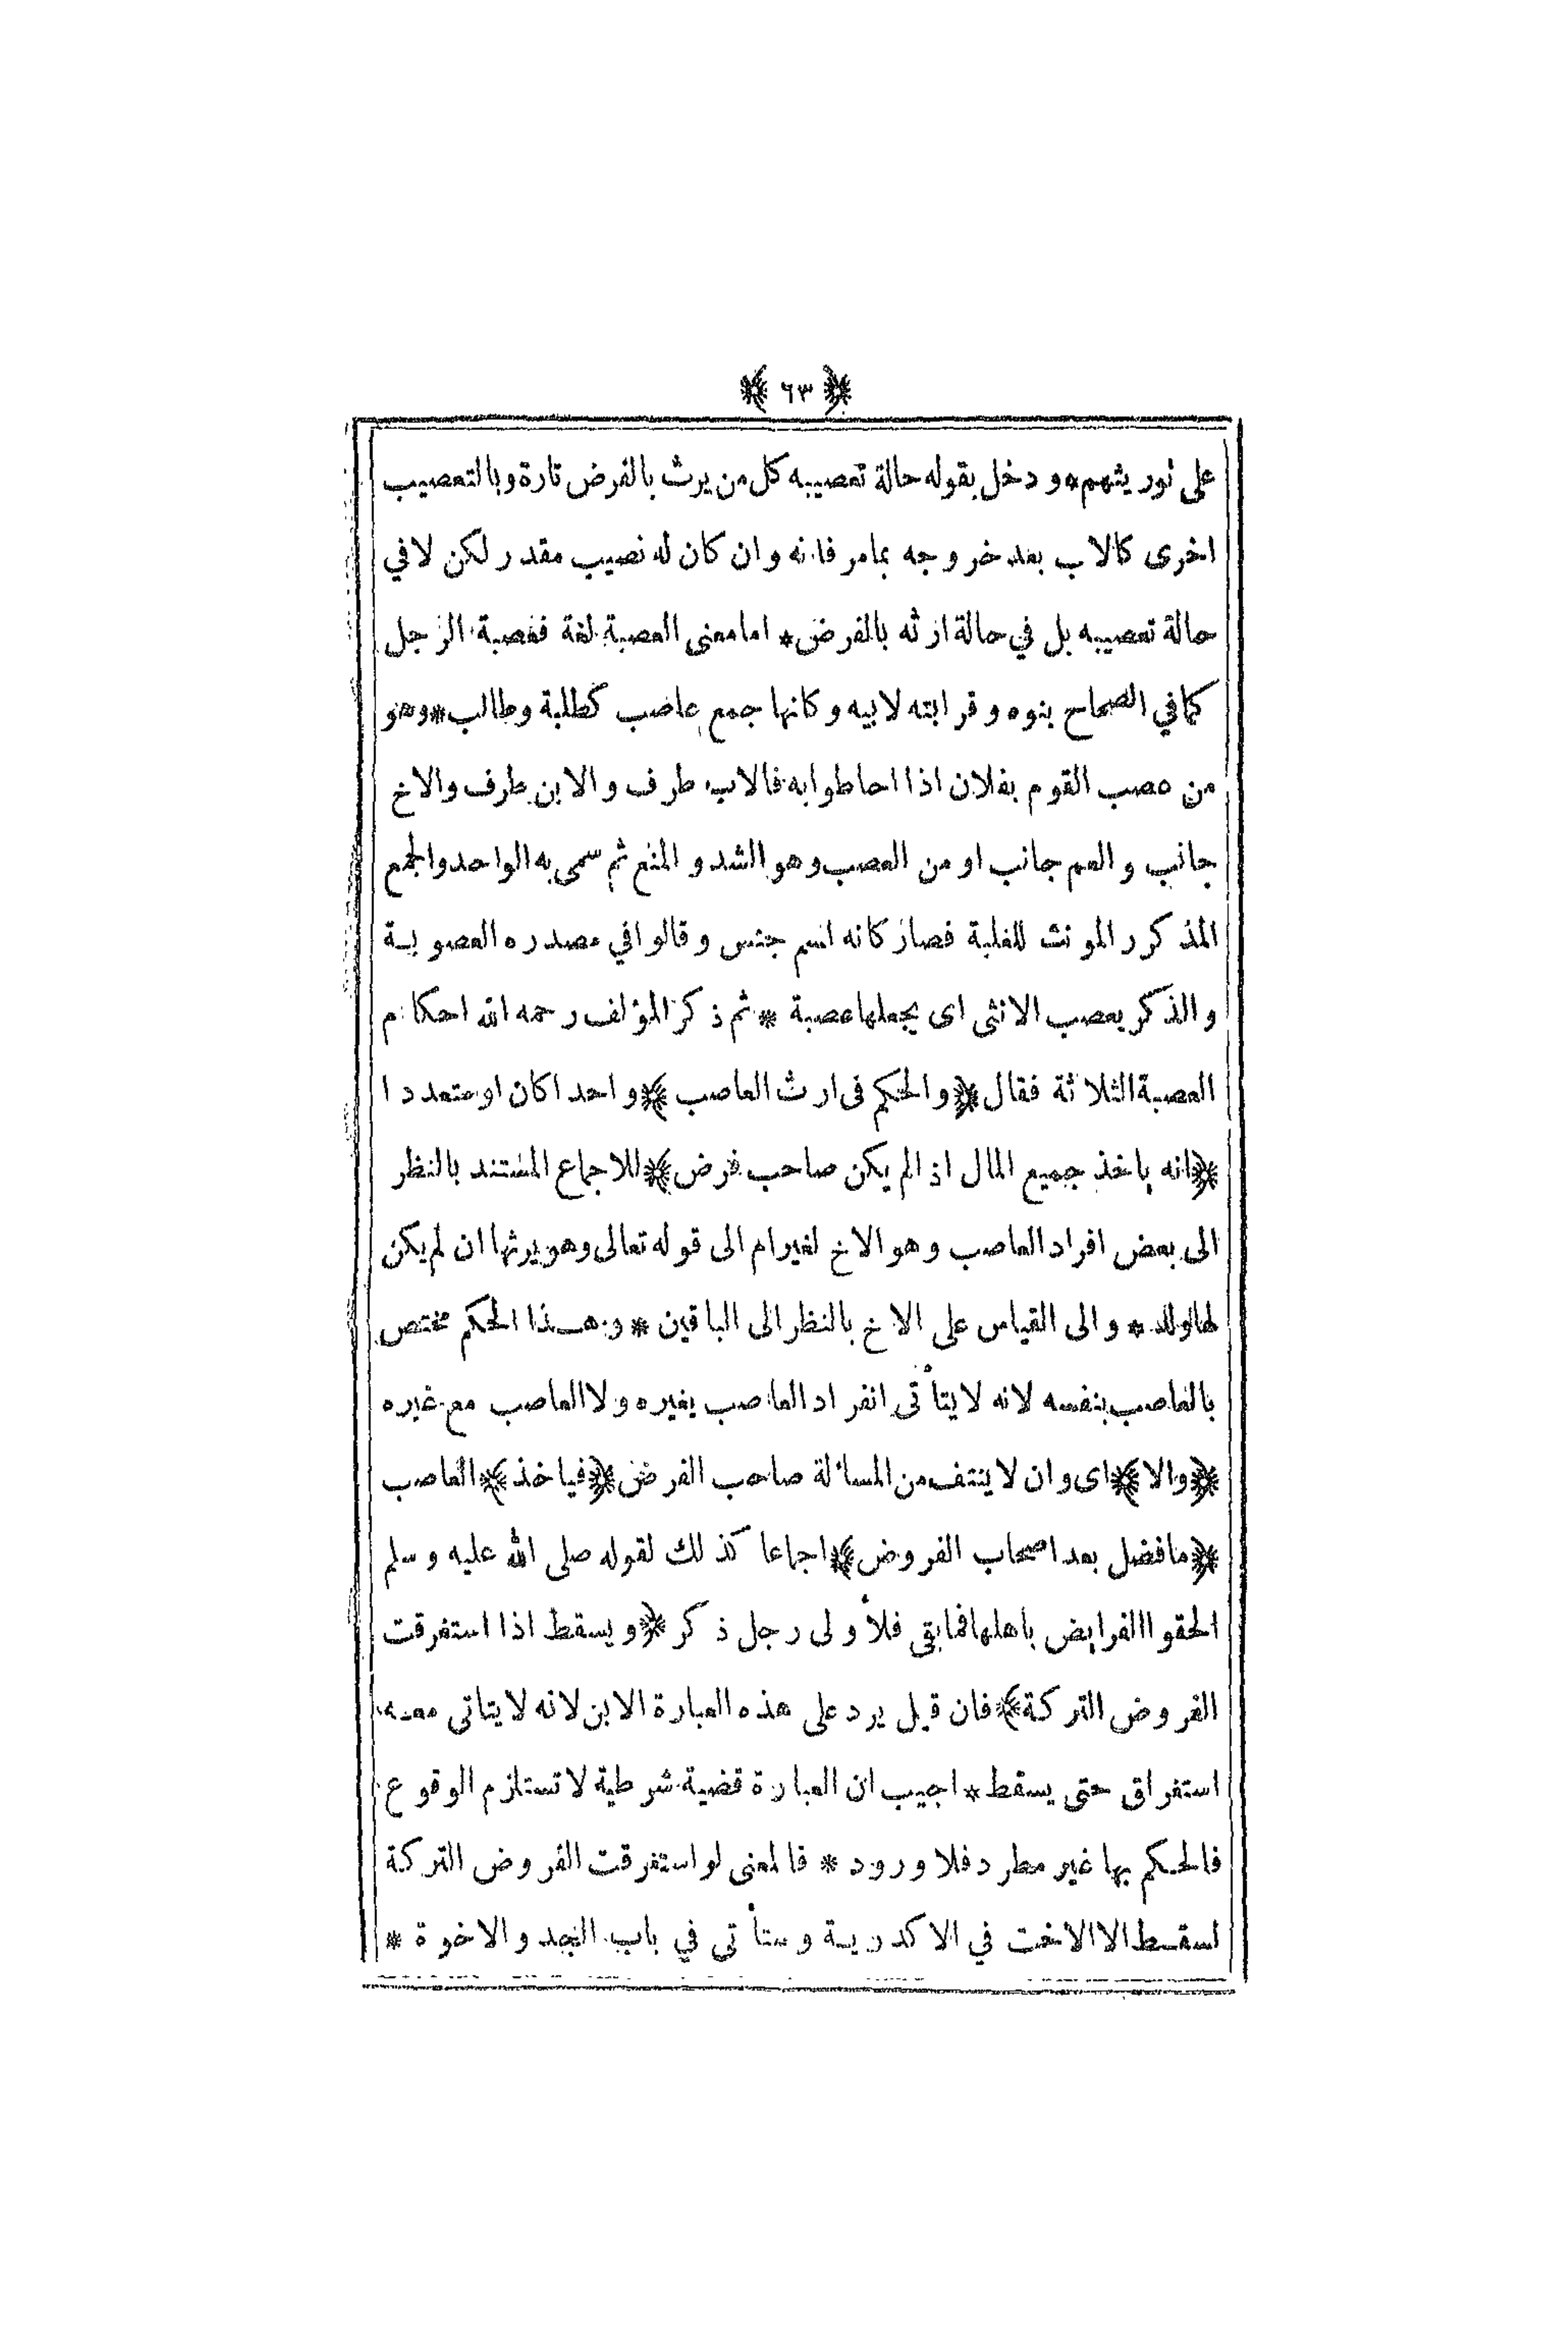 ﴿ ٦٣ ﴾
على توريثهم * ودخل بقوله حالة تعصيبه كل من يرث بالفرض تارة وبالتعصيب
اخرى كالاب بعد خروجه بمامر فانه وان كان له نصيب مقدر لكن لافي
حالة تعصيبه بل في حالة ارثه بالفرض * اما معنى العصبة لغة فعصبة الرجل
كمافي الصحاح بنوه وقرابته لابيه وكانها جمع عاصب كطلبة وطالب * وهو
من عصب القوم بفلان اذا احاطوا به فالاب طرف والابن طرف والاخ
جانب والعم جانب او من العصب وهو الشد والمنع ثم سمى به الواحد والجمع
المذكر والمونث للغلبة فصار كانه اسم جنس وقالوا في مصدره العصوبة
والذكر يعصب الانثى اى يجعلها عصبة * ثم ذكر المؤلف رحمه الله احكام
العصبة الثلاثة فقال ﴿ والحكم فى ارث العاصب ﴾ واحدا كان او متعددا
﴿ انه ياخذ جميع المال اذا لم يكن صاحب فرض ﴾ للاجماع المستند بالنظر
الى بعض افراد العاصب وهو الاخ لغير ام الى قوله تعالى وهو يرثها ان لم يكن
لها ولد * والى القياس على الاخ بالنظر الى الباقين * وهذا الحكم مختص
بالعاصب بنفسه لانه لا يتأتى انفراد العاصب بغيره ولا العاصب مع غيره
﴿ والا ﴾ اى وان لا ينتف من المسألة صاحب الفرض ﴿ فياخذ ﴾ العاصب
﴿ مافضل بعد اصحاب الفروض ﴾ اجماعا كذلك لقوله صلى الله عليه وسلم
الحقوا الفرايض باهلها فمابقى فلأولى رجل ذكر ﴿ ويسقط اذا استغرقت
الفروض التركة ﴾ فان قيل يرد على هذه العبارة الابن لانه لا يتاتى معه
استغراق حتى يسقط * اجيب ان العبارة قضية شرطية لا تستلزم الوقوع
فالحكم بها غير مطرد فلا ورود * فالمعنى لو استغرقت الفروض التركة
لسقط الا الاخت في الاكدرية وستأتى في باب الجد والاخوة *